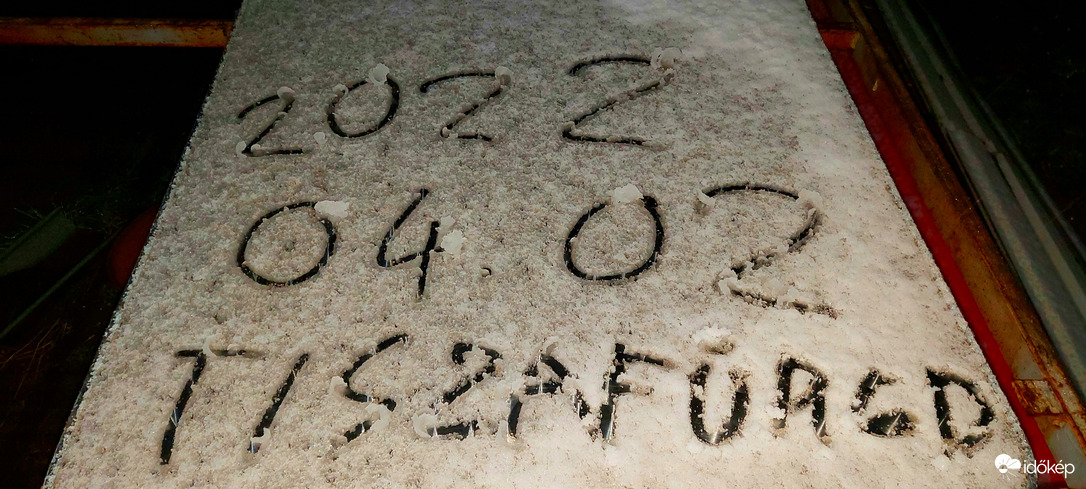 2022
04.02
TISZAFÜRED
időkép